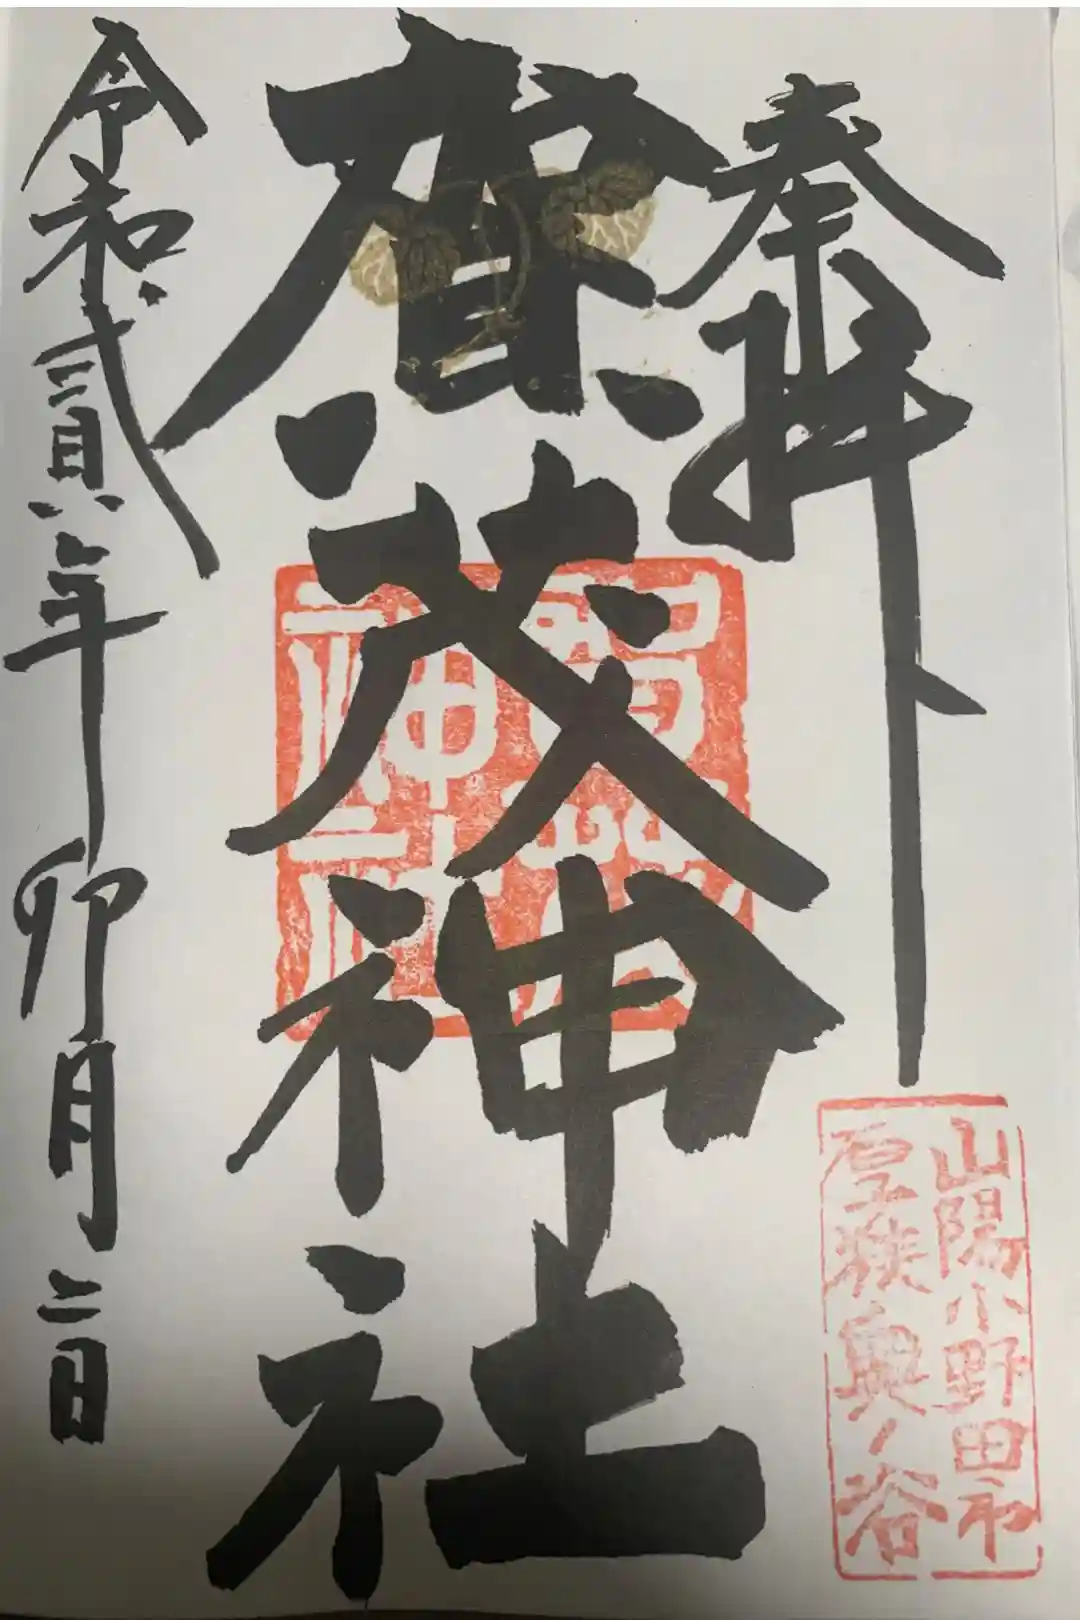 奉拝
賀茂神社
賀茂
神社
令和貳年卯月二日
山陽小野田市
厚狭奥ノ谷